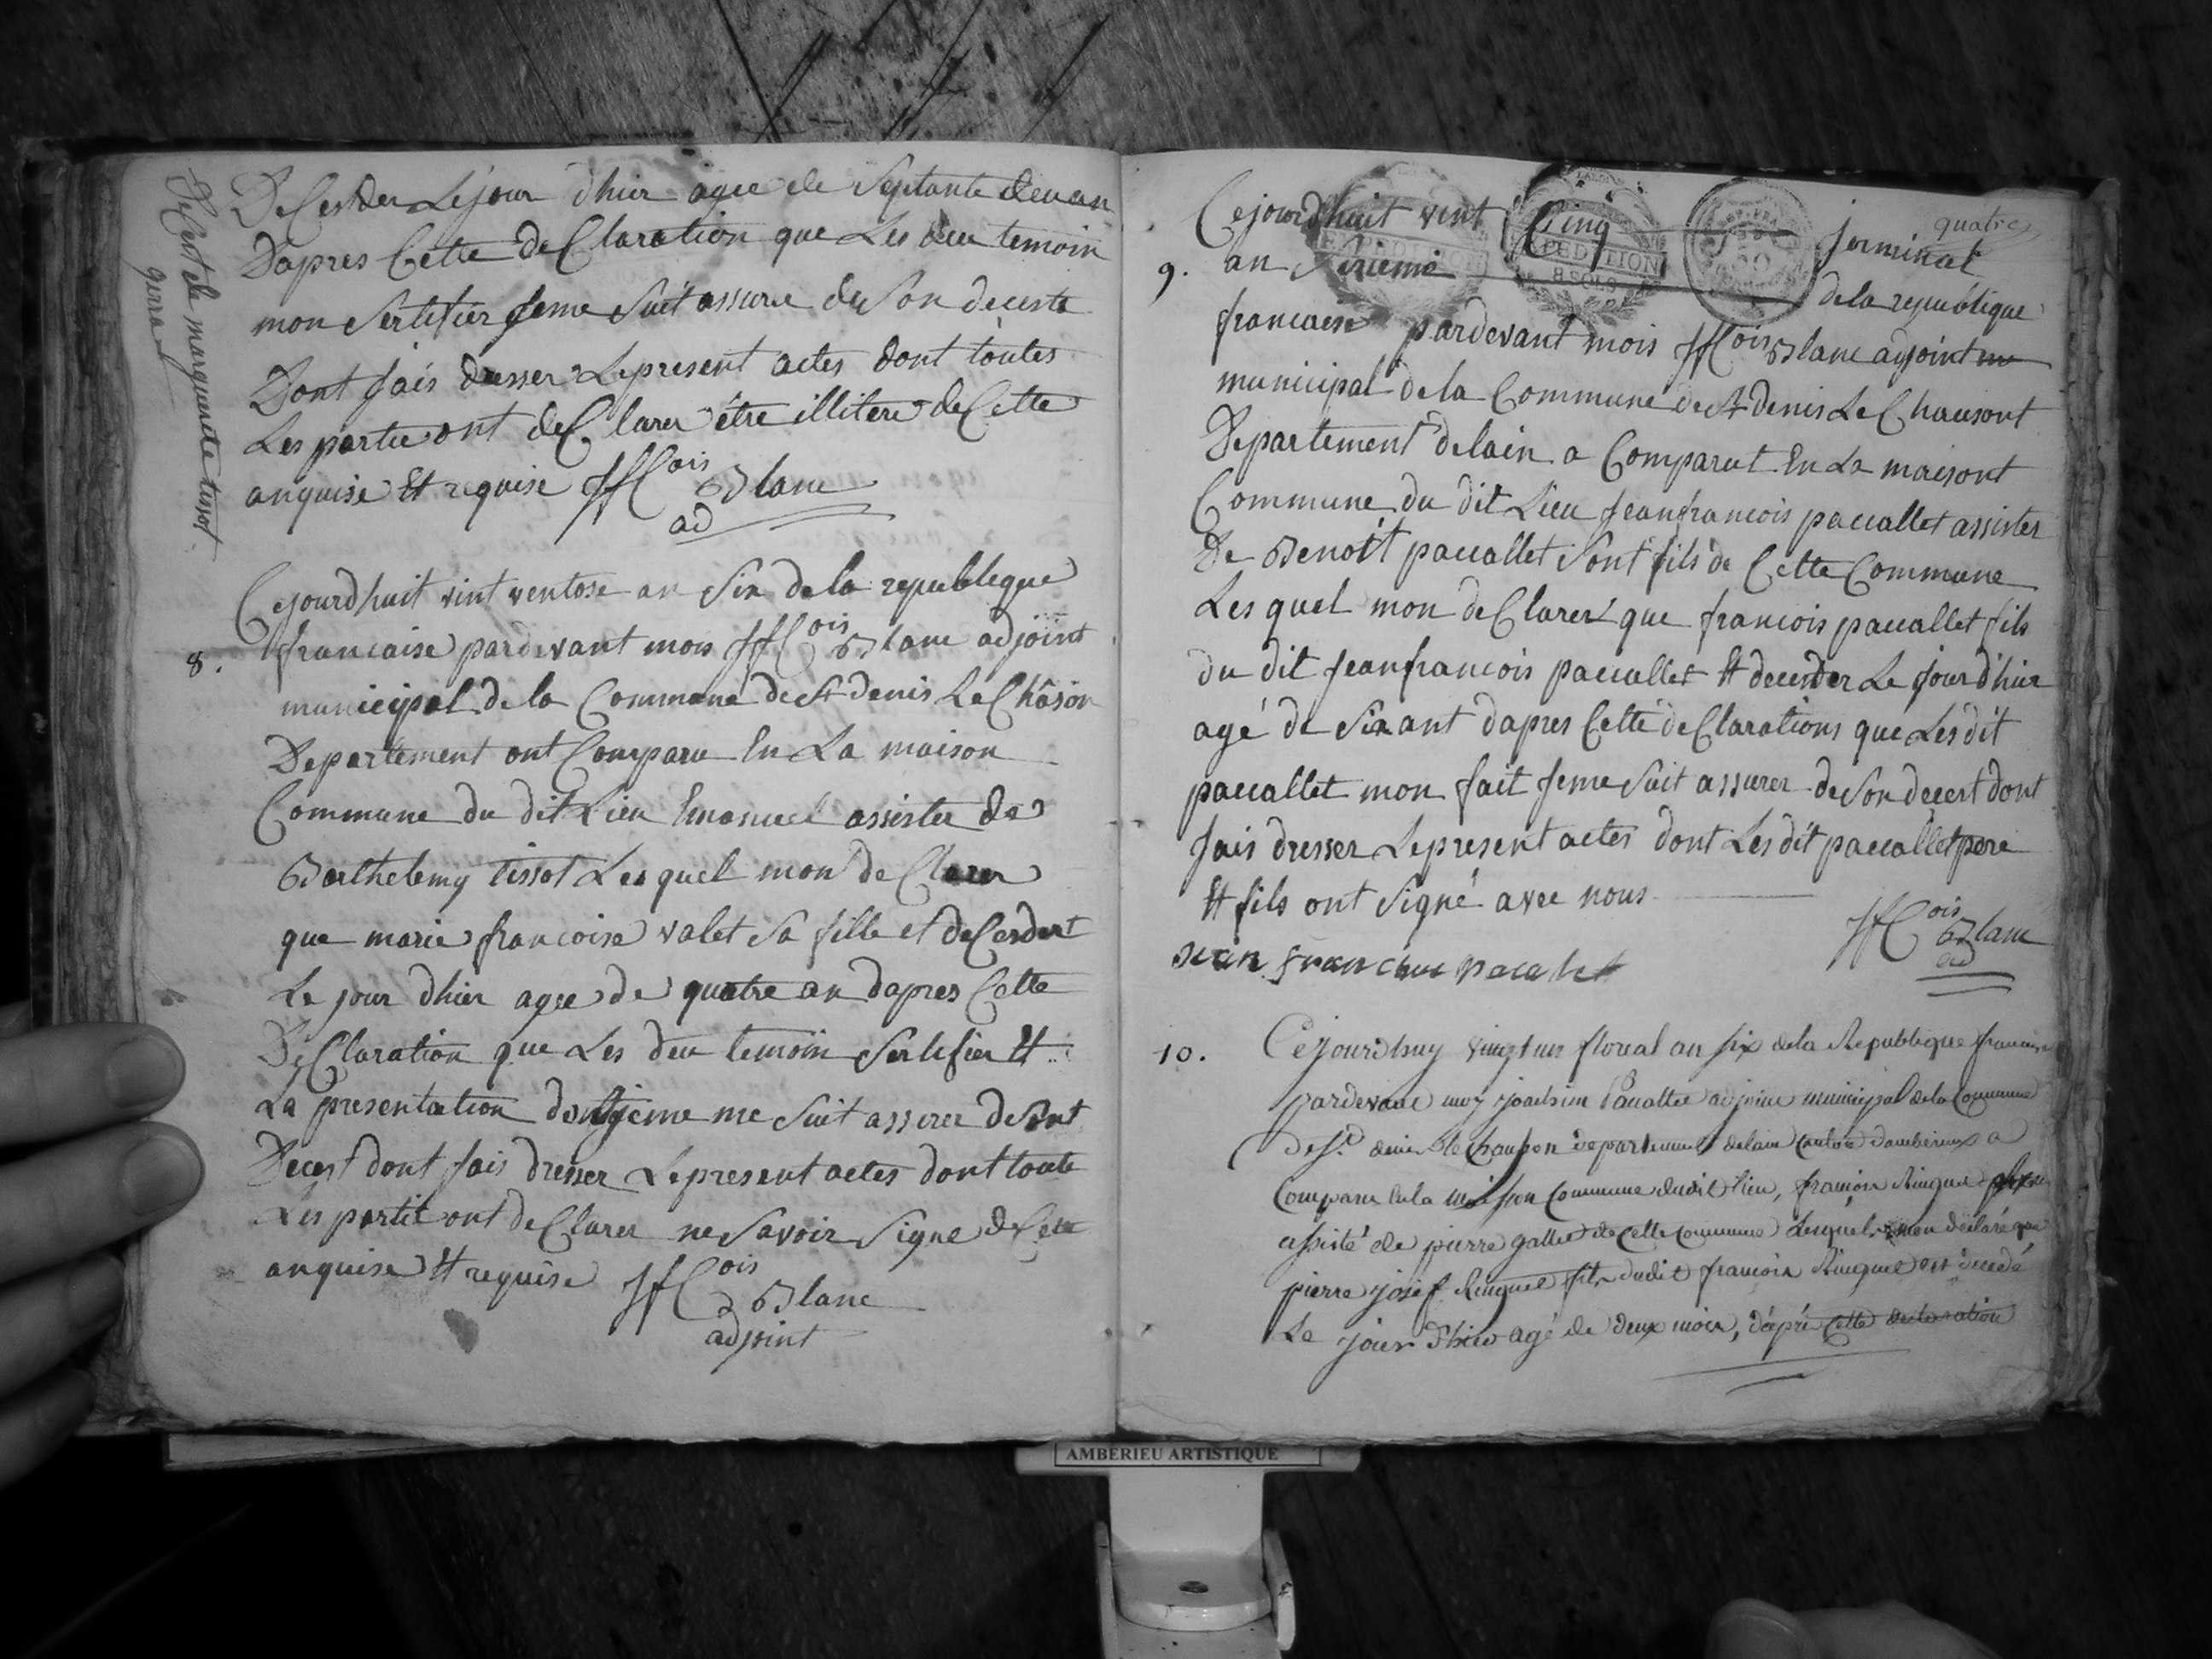 Decest de marguerite tissot
gerra
DeCesder Le jour dhier agee de Septante deux an
Dapres Cette deClaration que Les deu temoin
mon Sertifier Jeme Suit assure de Son deceste
Dont Jais dresser Le present actes dont toutes
Les partie ont deClarer être illitere de Cette
anquise Et requise JfCois Blanc
ad
8.
Cejourdhuit vint ventose an Six de la republique
francaise pardevant mois JfCois Blanc adjoint
municipal de la Commune de St denis Le Chôson
Departement ont Comparu En La maison
Commune du dit Lieu Emanuel assister de
Barthelemy tissot Les quel mon de Clarer
que marie francoise valet Sa fille et deCesdert
Le jour dhier agee de quatre an dapres Cette
DeClaration que Les deu temoin Sertifier Et
La presentation dont Jeme me Suit assurer de Sont
Decest dont Jais dresser Le present actes dont toute
Les partie ont deClarer ne Savoir Signe de Cette
anquise Et requise JfCois Blanc
adjoint
quatre
EXPEDITION
8 SOLS
9.
Cejourdhuit vint Cinq Jerminal
an Sixieme de la republique
francaise pardevant mois JfCois Blanc adjoint
municipal de la Commune de St denis Le Chausont
Departement delain a Comparut En La maisont
Commune du dit Lieu Jeanfrancois paccallet assister
De Benoît paccallet Sont fils de Cette Commune
Les quel mon deClarer que francois paccallet fils
du dit Jeanfrancois paccallet Et decesder Le jour d'hier
agé de Six ant dapres Cette deClarations que Les dit
paccallet mon fait Jeme Suit assurer de Son decest dont
Jais dresser Le present actes dont Les dit paccallet pere
Et fils ont Signé avec nous
JfCois Blanc
ad
Jean pacalet
10.
Cejourdhuy vingt un floreal an six de la Republique francaise
pardevant moy joachim Paccallet adjoint municipal de la Commune
de St. denis le Chauson departement delain Canton dambérieux a
Comparu en la maison Commune dudit lieu, françois Ringuet
assisté de pierre gallet de Cette Commune Lesquels mon déclaré que
pierre josef Ringuet fils dudit françois Ringuet est décédé
Le jour d'hier agé de deux mois, d'aprè Cette declaration
AMBERIEU ARTISTIQUE